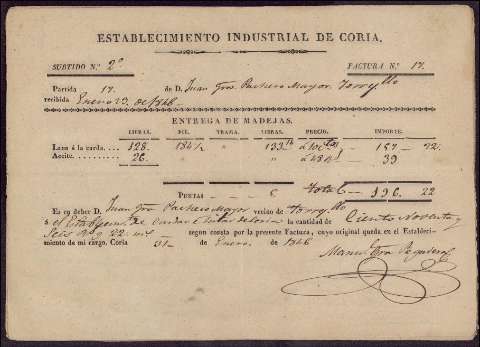 ESTABLECIMIENTO INDUSTRIAL DE CORIA.
SURTIDO N.º 2º FACTURA N.º 17.
Partida 17. de D. Juan Pachero Mayor,
recibida Enero 23. de 1846
ENTREGA DE MADEJAS.
LIBRAS. PIE. TRAMA. LIBRAS. PRECIO. IMPORTE.
Lana á la carda 128. 184 " 133 á 157 22.
Aceite. 26. " " " á 39
PUNTAS 6 196. 22
Es en deber D. Juan Pachero Mayor vecino de
á el Establecim. de Cardar é hilar de Coria la cantidad de Ciento Noventa y
Seis 22 segun consta por la presente Factura, cuyo original queda en el Estableci-
miento de mi cargo. Coria 31 de Enero. de 1846